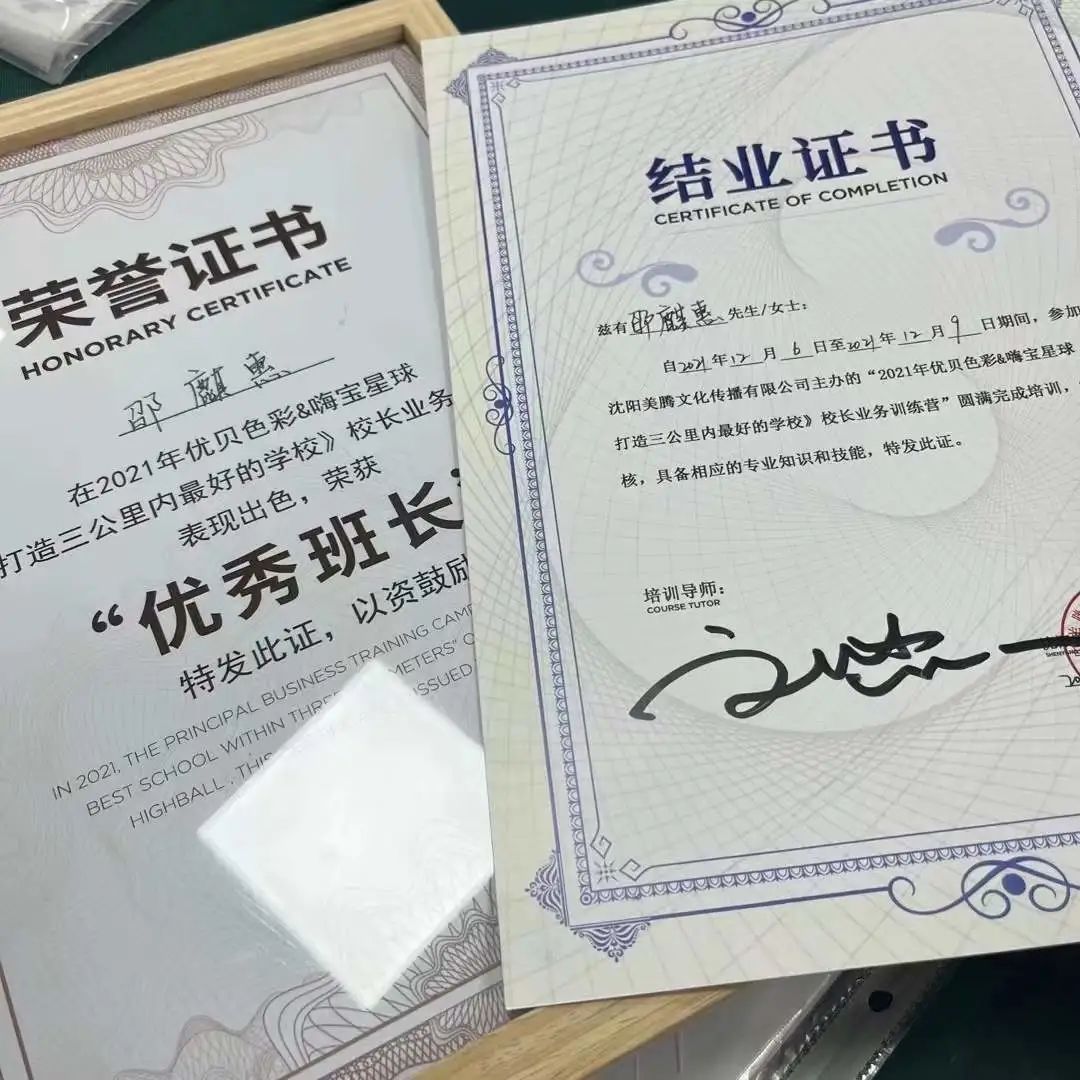 荣誉证书
HONORARY CERTIFICATE
邵麒惠
在2021年优贝色彩&嗨宝星球
打造三公里内最好的学校》校长业务
表现出色，荣获
“优秀班长”
特发此证，以资鼓励
IN 2021, THE PRINCIPAL BUSINESS TRAINING CAMP
BEST SCHOOL WITHIN THREE METERS" O
HIGHBALL . THIS ISSUED
结业证书
CERTIFICATE OF COMPLETION
兹有邵麒惠先生/女士：
自2021年12月6日至2021年12月9日期间，参加
沈阳美腾文化传播有限公司主办的“2021年优贝色彩&嗨宝星球
打造三公里内最好的学校》校长业务训练营”圆满完成培训，
核，具备相应的专业知识和技能，特发此证。
培训导师：
COURSE TUTOR